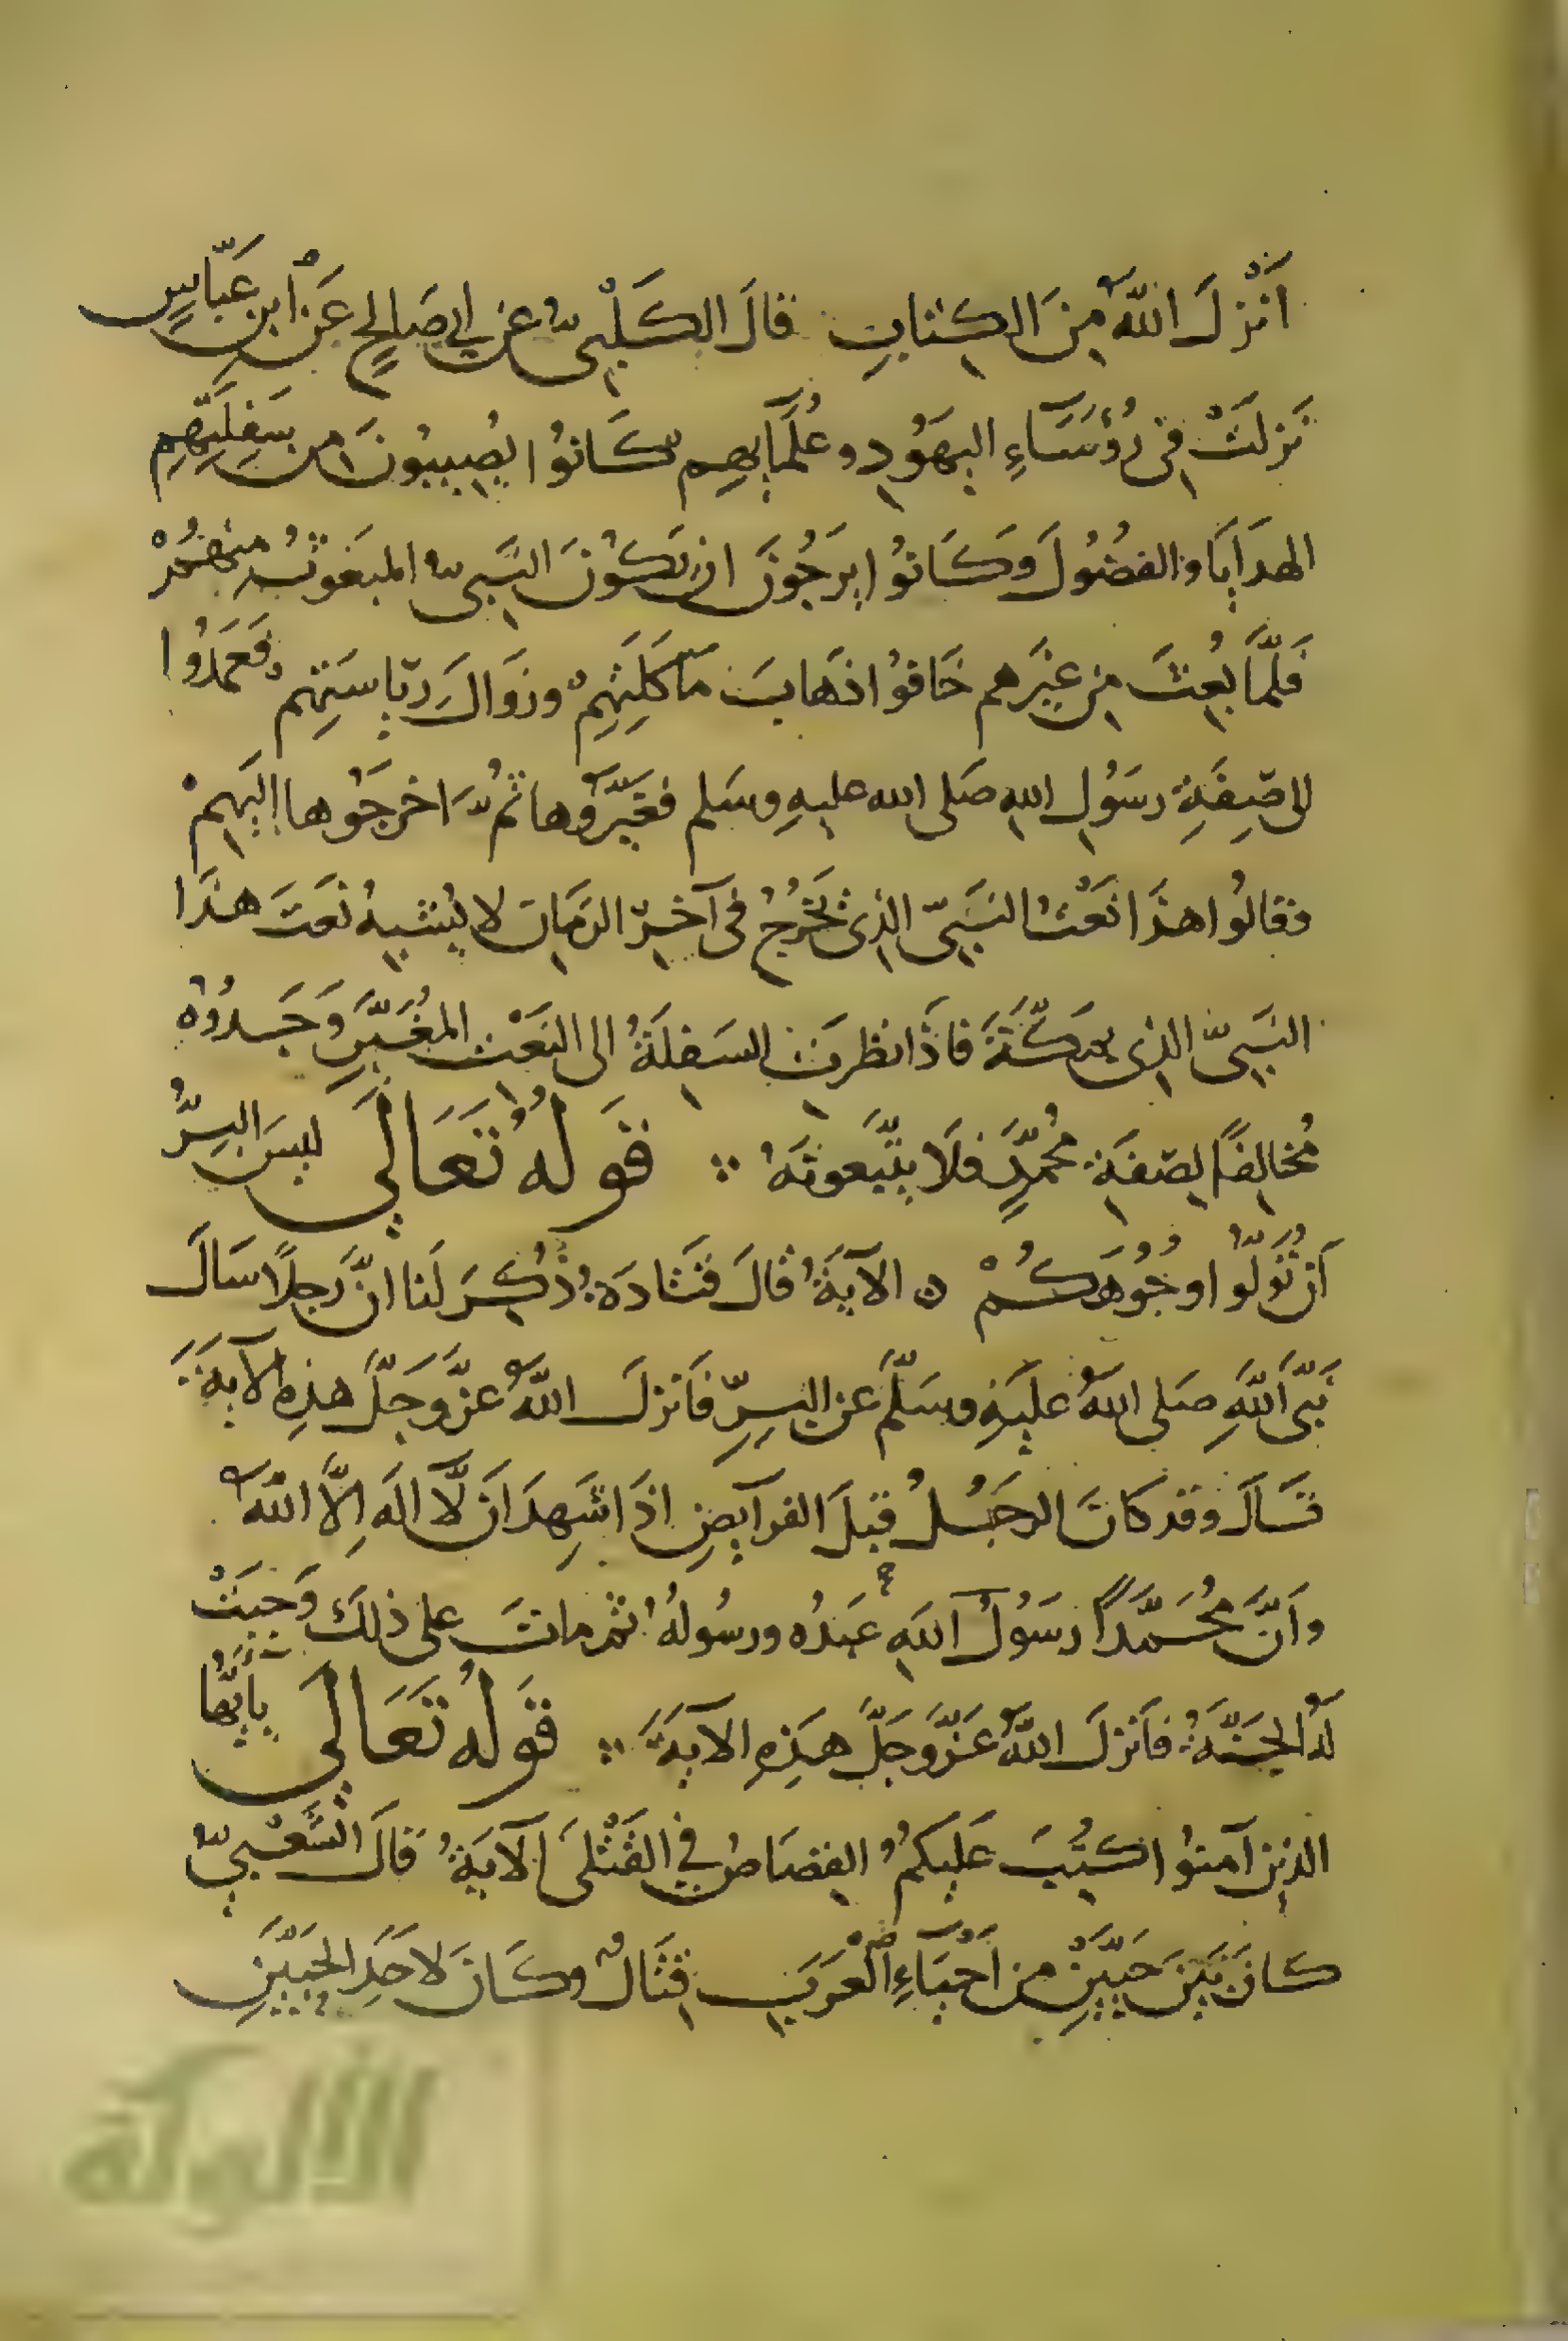 أَنْزَلَ اللَّهُ مِنَ الكِتَابِ قَالَ الكَلْبِيُّ عَن ابِي صَالِحٍ عَنْ ابنِ عَبَّاسٍ
نَزلَتْ فِي رُؤَسَاءِ اليَهُودِ وعُلَمَآيِهِم كَانُوا يُصِيبُونَ مِن سَفِلَتِهِم
الهَدَايَا والفُضُولَ وَكَانُوا يَرجُونَ ان يَكُونَ النَّبِيُّ المَبعُوثُ مِنْهُمْ
فَلَمَّا بُعِثَ مِن غَيرِهم خَافُوا ذَهَابَ مَأكَلَتِهِمْ وزَوَالَ رِيَاسَتِهِمْ فَعَمَدُوا
الى صِفَةِ رسُولِ اللهِ صَلى الله عليهِ وسَلم فغَيَّرُوها ثمَّ اخرجُوها إليَهِمْ
وقالُوا هذَا نَعْتُ النَبِيّ الذِى يَخْرُجُ فى آخِرِ الزمَانِ لا يُشبِهُ نَعتَ هذَا
النَبِيّ الذِى بمكَّةَ فاذَا نظرتِ السَفِلَةُ الى النَعْتِ المُغَيَّرِ وَجَدُوهُ
مُخَالِفًا لِصفَةِ مُحمَّدٍ فَلَا يتَّبعونَهُ ∴ قَولهُ تَعَالَى ليسَ البِرُّ
أَن تُوَلُّوا وجُوهَكُمْ ه الآيَةُ قالَ قتَادَةُ ذُكِرَ لَنا انَّ رَجلًا سَالَ
نَبىَّ اللهِ صَلى اللهُ عليَهِ وسَلَّمَ عن البِرِّ فَأنزلَ اللَّهُ عزَّ وجَلَّ هذِهِ الآيةَ ∴
قَالَ وقد كانَ الرجُلُ قبلَ الفرآيضِ اذَا شَهِدَ ان لَّا الَهَ إِلَّا اللهُ
وأنَّ مُحَمَّدًا رسَوُلُ اللهِ عَبدُه ورسُولهُ ثم ماتَ على ذلكَ وَجبَتْ
لَهُ الجنَّةُ فأنزلَ اللهُ عَزَّ وجَلَّ هَذِهِ الآيةَ ∴ قَولهُ تَعَالَى يأيُّها
الذين آمنُوا كُتِبَ عَليكمُ القِصَاصُ في القَتْلَى الآيَةُ قالَ الشَّعْبِيُّ
كانَ بَينَ حَيَّيْنِ من أحْيَآءِ العَرَبِ قِتَالٌ وكَانَ لاحَدِ الحَيَّيْنِ
الألوكة